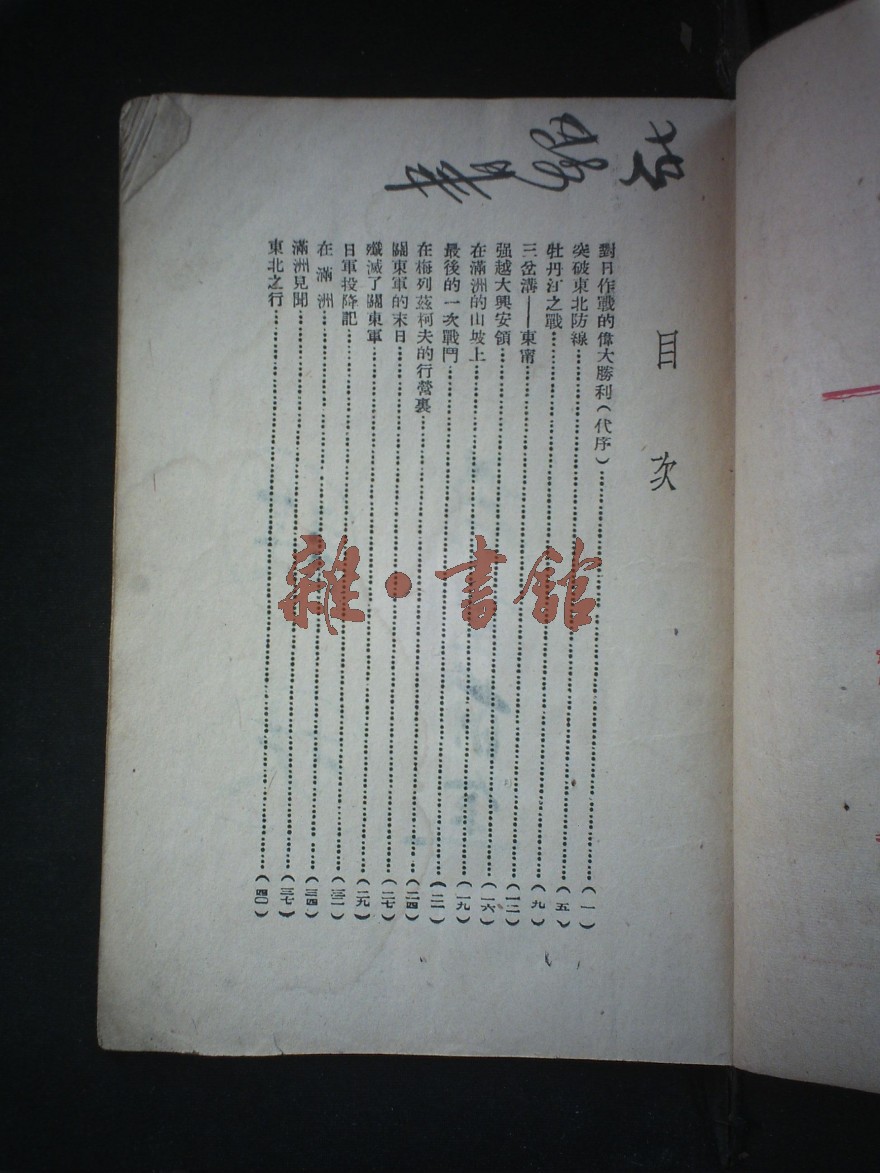 目次
對日作戰的偉大勝利(代序)……(一)
突破東北防線……(五)
牡丹江之戰……(九)
三岔溝——東甯……(一二)
强越大興安領……(一六)
在滿洲的山坡上……(一九)
最後的一次戰鬥……(二一)
在梅列茲柯夫的行營裏……(二四)
關東軍的末日……(二七)
殲滅了關東軍……(二九)
日軍投降記……(三二)
在滿洲……(三四)
滿洲見聞……(三七)
東北之行……(四〇)
雜·書館